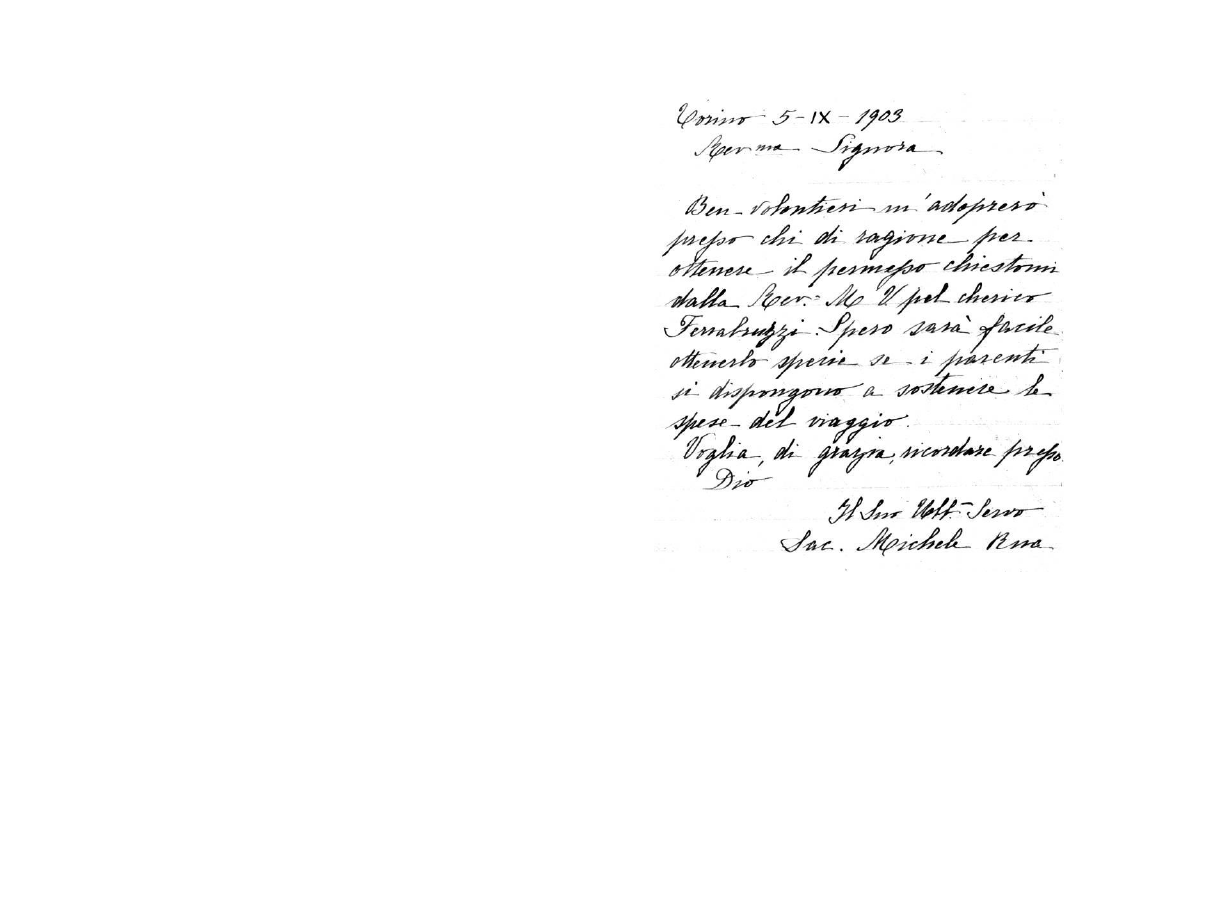 Torino 5-IX-1903
Rev.ma Signora
Ben volontieri m'adoprerò
presso chi di ragione per
ottenere il permesso chiestomi
dalla Rev. M V pel cherico
Ferrabruzzi. Spero sarà facile
ottenerlo specie se i parenti
si dispongono a sostenere le
spese del viaggio.
Voglia, di grazia, ricordare presso
Dio
Il Suo Obb. Servo
Sac. Michele Rua